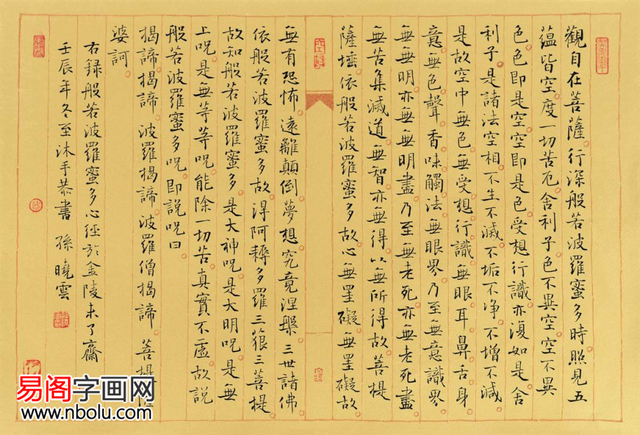 觀自在菩薩行深般若波羅蜜多時照見五
蘊皆空度一切苦厄舍利子色不異空空不異
色色即是空空即是色受想行識亦復如是舍
利子是諸法空相不生不滅不垢不淨不增不減
是故空中無色無受想行識無眼耳鼻舌身
意無色聲香味觸法無眼界乃至無意識界
無無明亦無無明盡乃至無老死亦無老死盡
無苦集滅道無智亦無得以無所得故菩提
薩埵依般若波羅蜜多故心無罣礙無罣礙故
無有恐怖遠離顛倒夢想究竟涅槃三世諸佛
依般若波羅蜜多故得阿耨多羅三藐三菩提
故知般若波羅蜜多是大神咒是大明咒是無
上咒是無等等咒能除一切苦真實不虛故說
般若波羅蜜多咒即說咒曰
揭諦揭諦 波羅揭諦 波羅僧揭諦 菩提薩
婆訶
右錄般若波羅蜜多心經於金陵未了齋
壬辰年冬至沐手恭書 孫曉雲
易阁字画网
www.nbolu.com